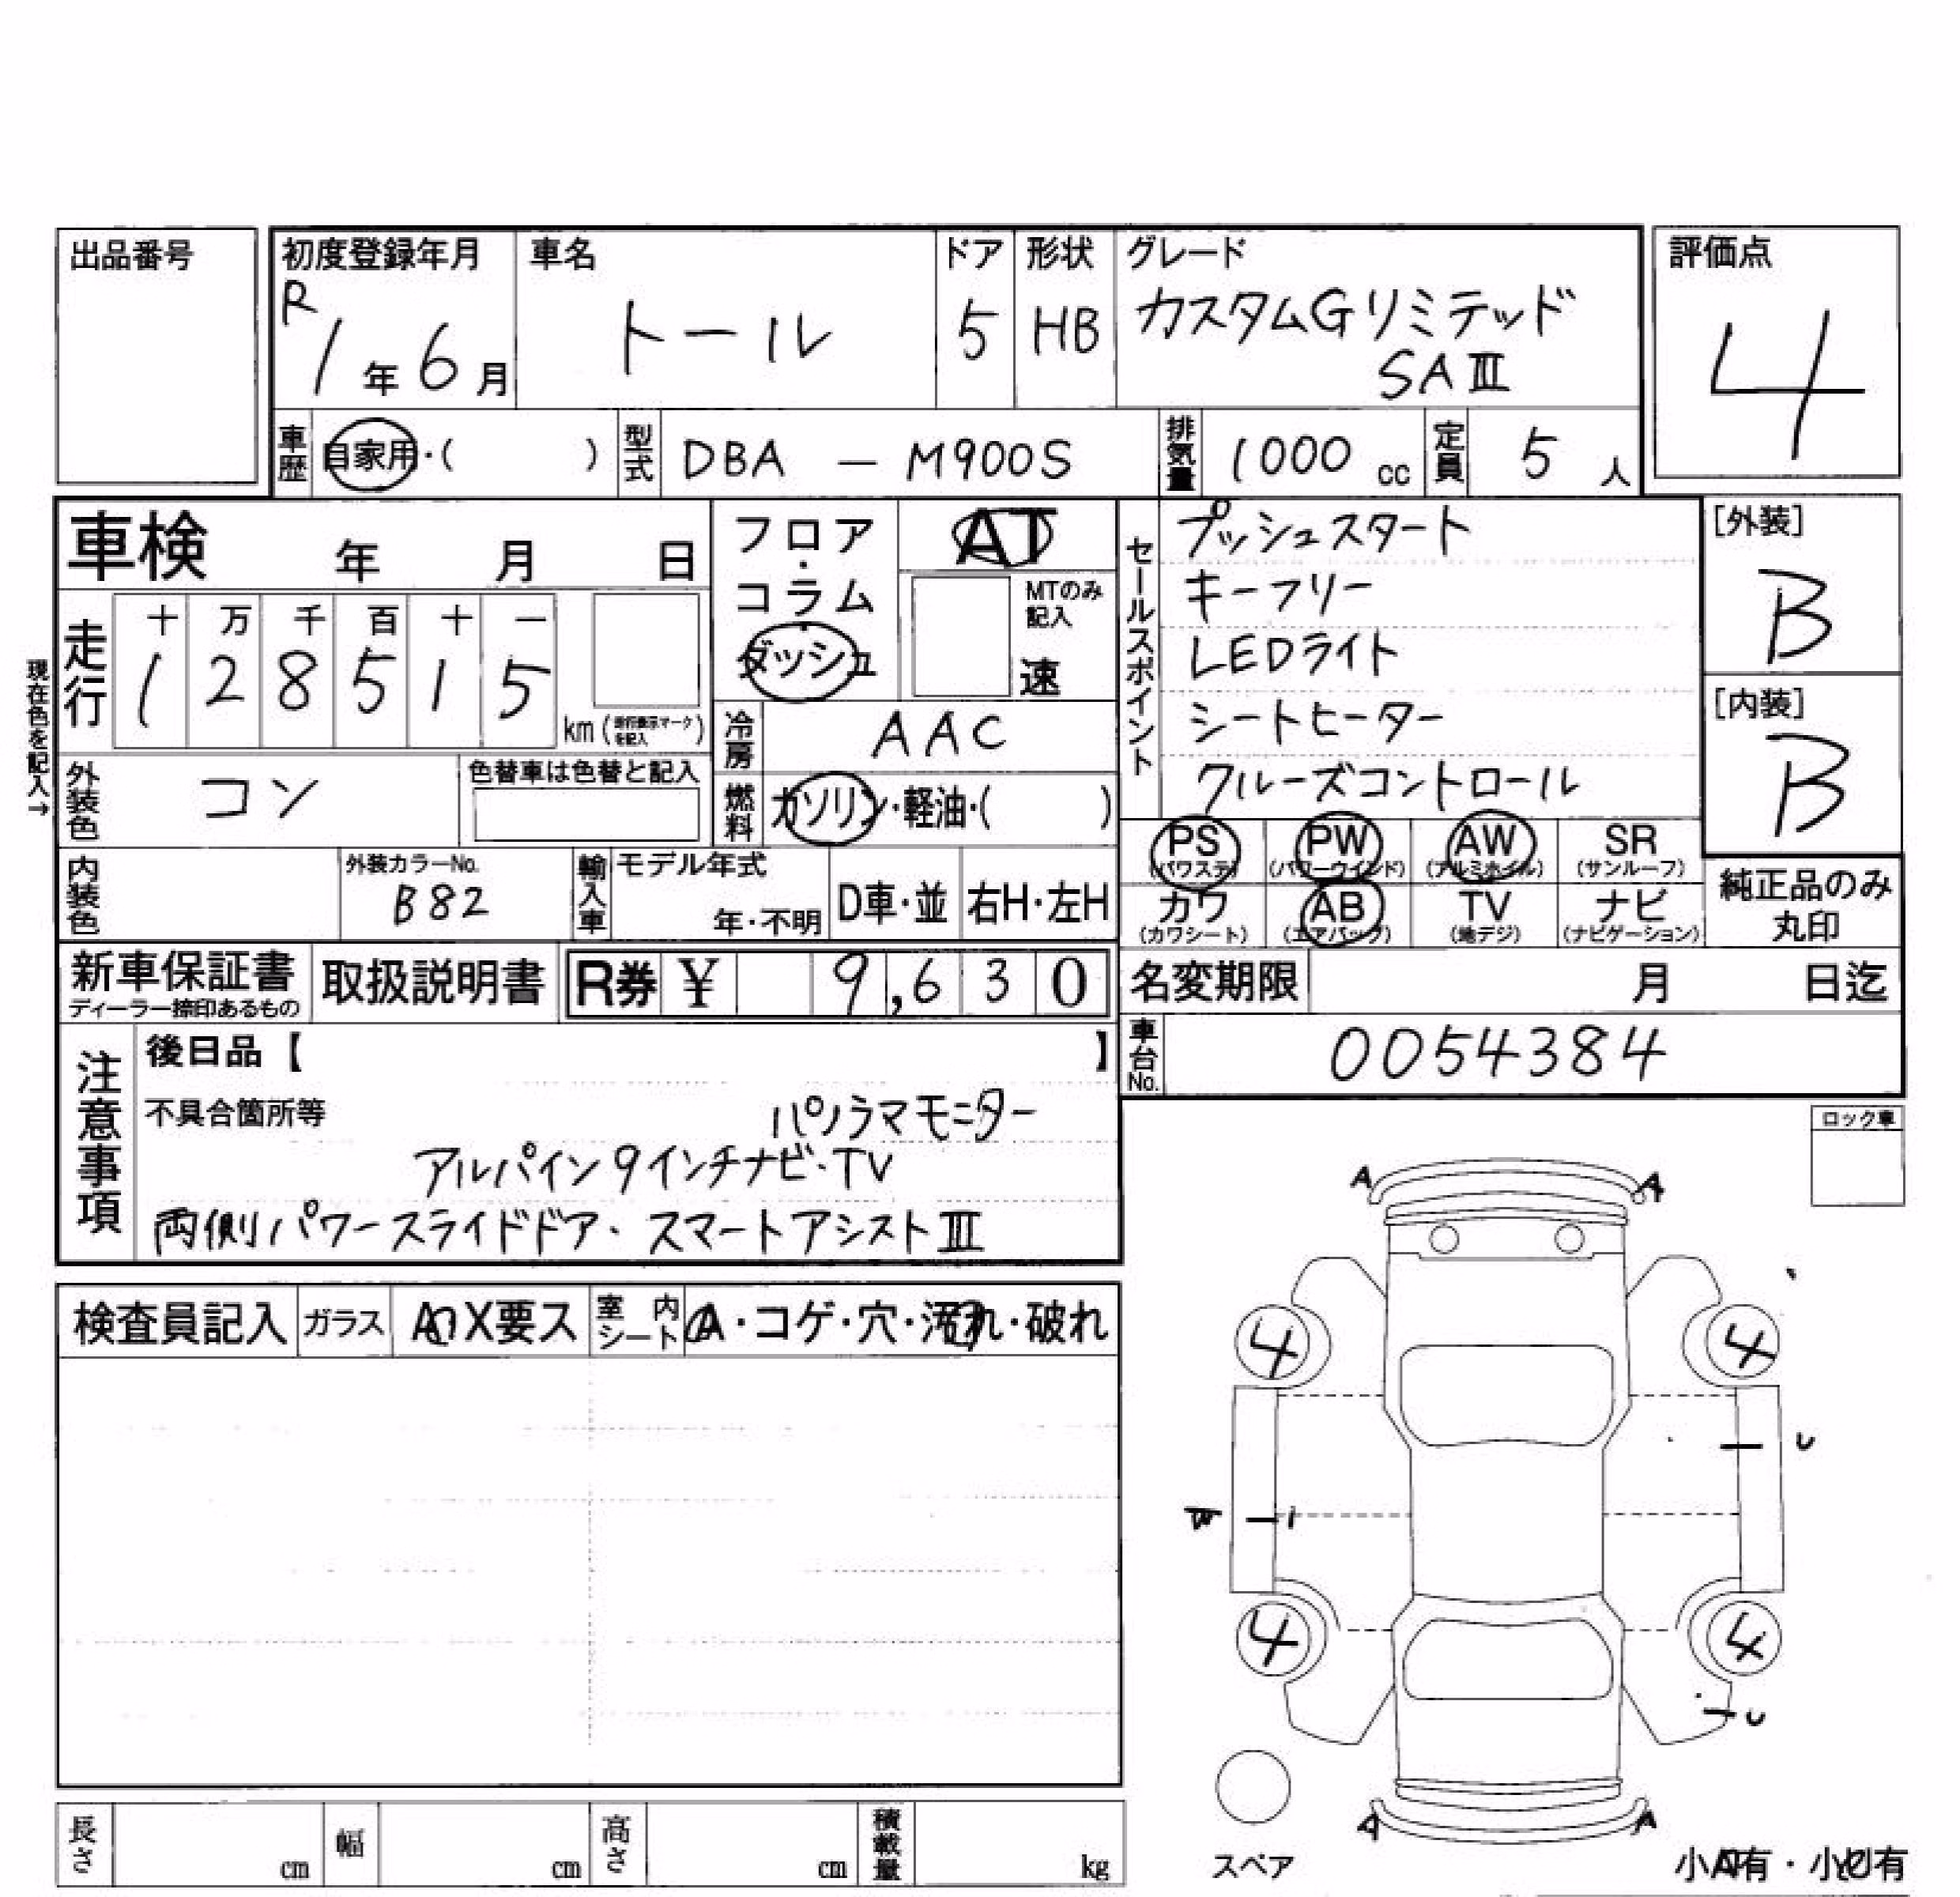 出品番号
初度登録年月
R1年6月
車名
トール
ドア
5
形状
HB
グレード
カスタムGリミテッド
SAⅢ
評価点
4
車歴
自家用・( )
型式
DBA — M900S
排気量
1000 cc
定員
5 人
車検 年 月 日
フロア・コラム
ダッシュ
AT
MTのみ
記入
速
セールスポイント
プッシュスタート
キーフリー
LEDライト
シートヒーター
クルーズコントロール
[外装]
B
[内装]
B
現在色を記入→
走行
十 万 千 百 十 一
1 2 8 5 1 5
km (走行表示マークを記入)
冷房
AAC
外装色
コン
色替車は色替と記入
燃料
ガソリン・軽油・( )
PS
(パワステ)
PW
(パワーウインド)
AW
(アルミホイル)
SR
(サンルーフ)
カワ
(カワシート)
AB
(エアバッグ)
TV
(地デジ)
ナビ
(ナビゲーション)
純正品のみ
丸印
内装色
外装カラーNo.
B82
輸入車
モデル年式
年・不明
D車・並
右H・左H
新車保証書
ディーラー捺印あるもの
取扱説明書
R券 ¥ 9,630
名変期限 月 日迄
車台No.
0054384
注意事項
後日品【 】
不具合箇所等
パノラマモニター
アルパイン9インチナビ・TV
両側パワースライドドア・スマートアシストⅢ
ロック車
検査員記入
ガラス
A X要ス
室内シート
A・コゲ・穴・汚れ・破れ
A A
4 4
U
W
4 4
U
A A
スペア
小A有・小U有
長さ cm
幅 cm
高さ cm
積載量 kg